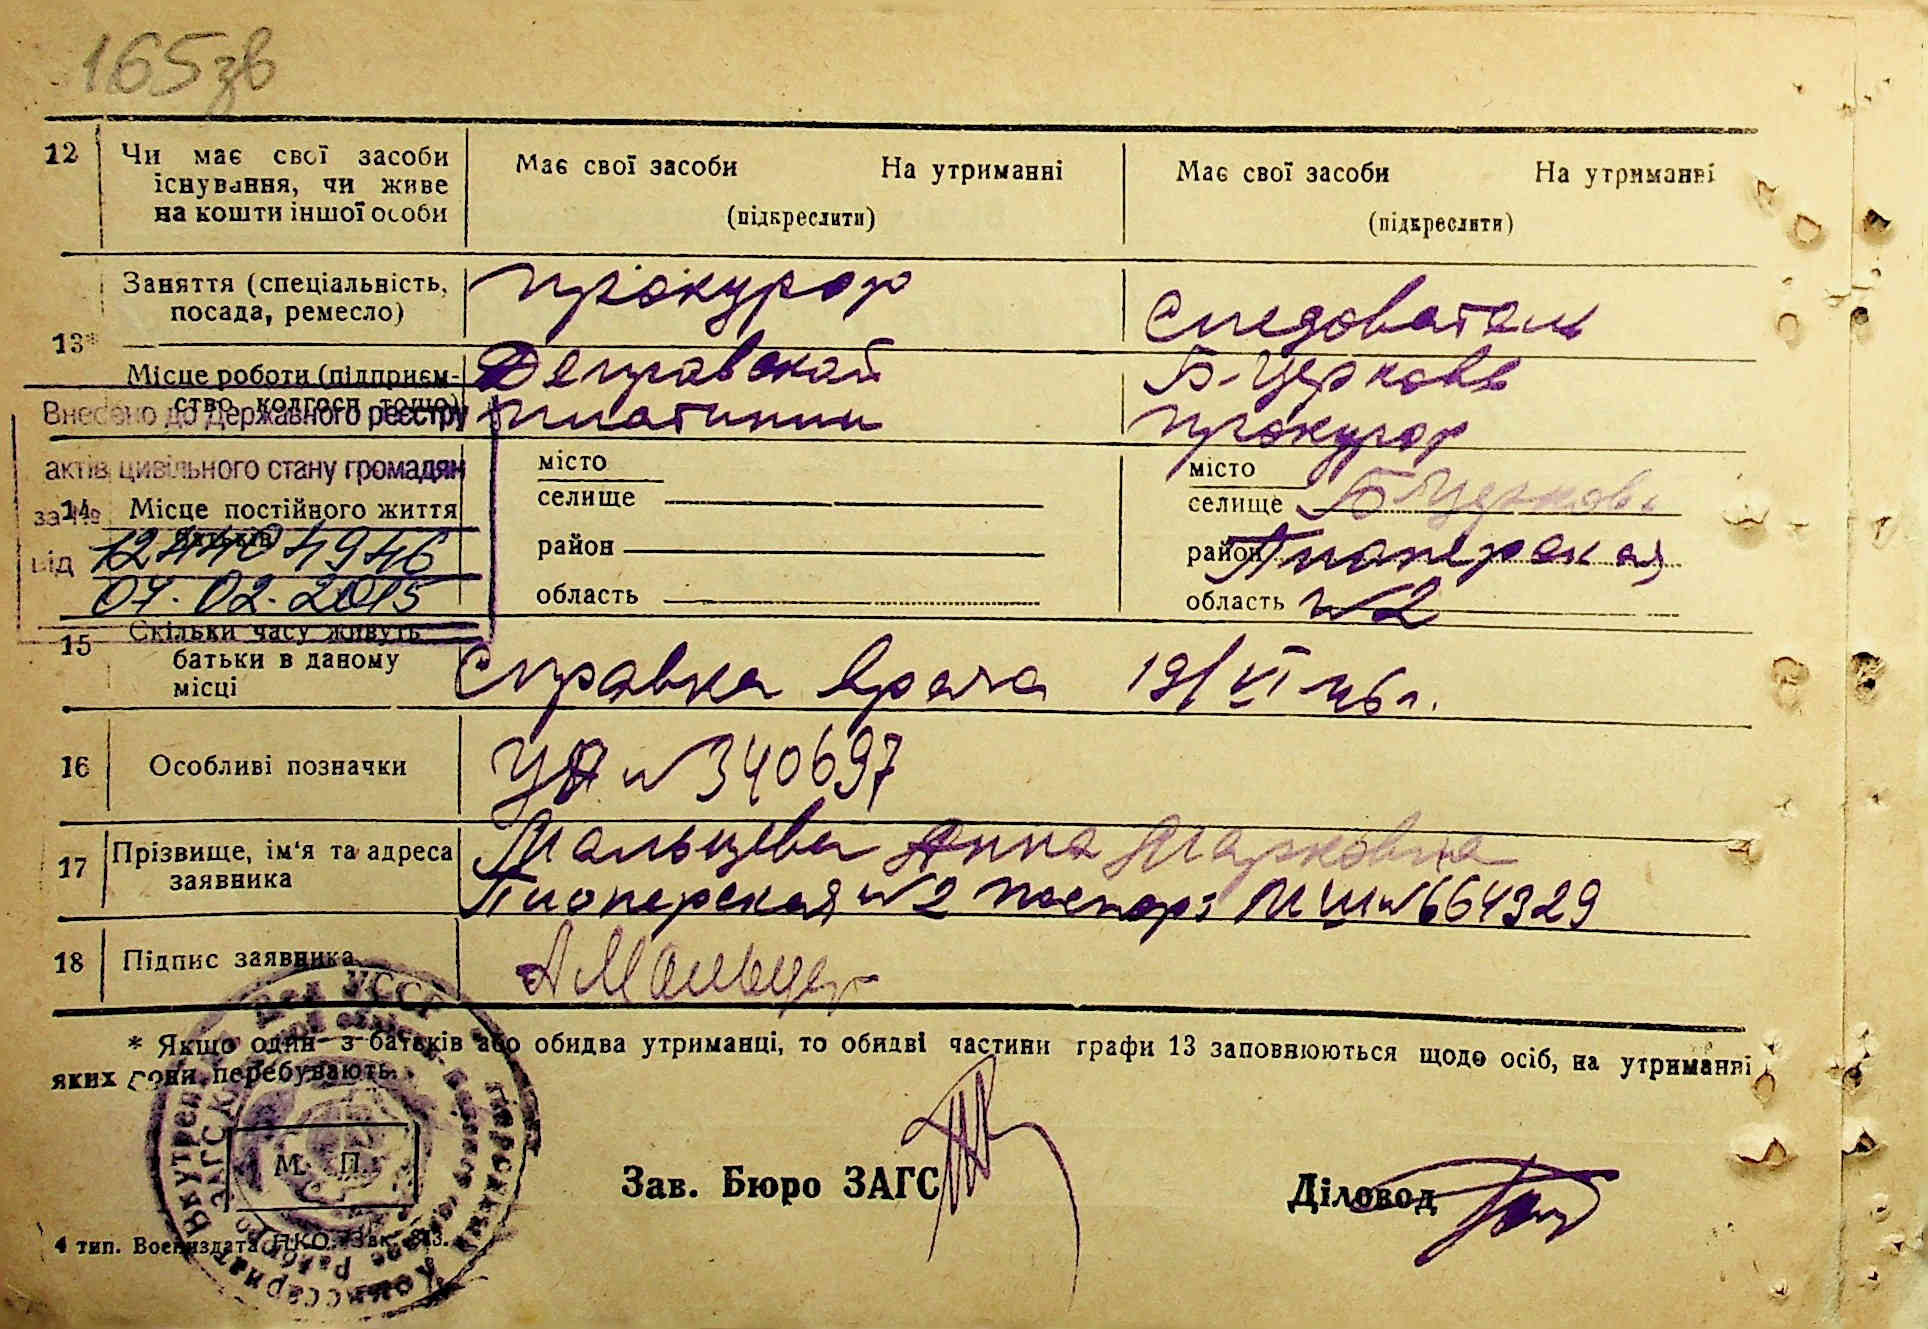 165зв
12 Чи має свої засоби Має свої засоби На утриманні Має свої засоби На утриманні
існування, чи живе
на кошти іншої особи (підкреслити) (підкреслити)
Заняття (спеціальність, прокурор Следователь
посада, ремесло)
13*
Місце роботи (підприєм- Б-Церковь
ство, колгосп тощо) прокурор
Внесено до Державного реєстру
актів цивільного стану громадян
за №
від 07.02.2015
14 Місце постійного життя місто місто
батьків селище селище Б Церковь
район район Пионерская
область область №2
15 Скільки часу живуть Справка врача 19/VI 46 г.
батьки в даному
місці
16 Особливі позначки № 340697
17 Прізвище, ім'я та адреса Мальцева Анна Марковна
заявника Пионерская №2 паспорт № 664329
18 Підпис заявника АМальцев
* Якщо один з батьків або обидва утриманці, то обидві частини графи 13 заповнюються щодо осіб, на утриманні
яких вони перебувають.
М. П.
Зав. Бюро ЗАГС Діловод
4 тип. Воениздата НКО. Зак. 313.